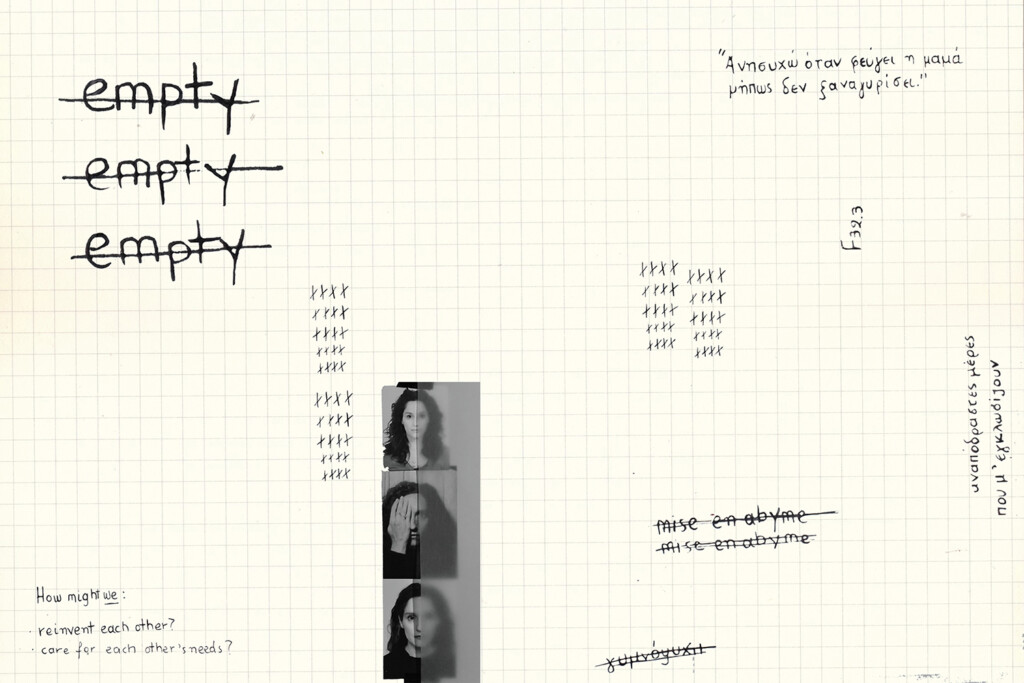 empty
empty
empty
"Ανησυχώ όταν φεύγει η μαμά
μήπως δεν ξαναγυρίσει."
F32.3
αναπόδραστες μέρες
που μ' εγκλωβίζουν
mise en abyme
mise en abyme
How might we:
· reinvent each other?
· care for each other's needs?
γυμνόψυχη